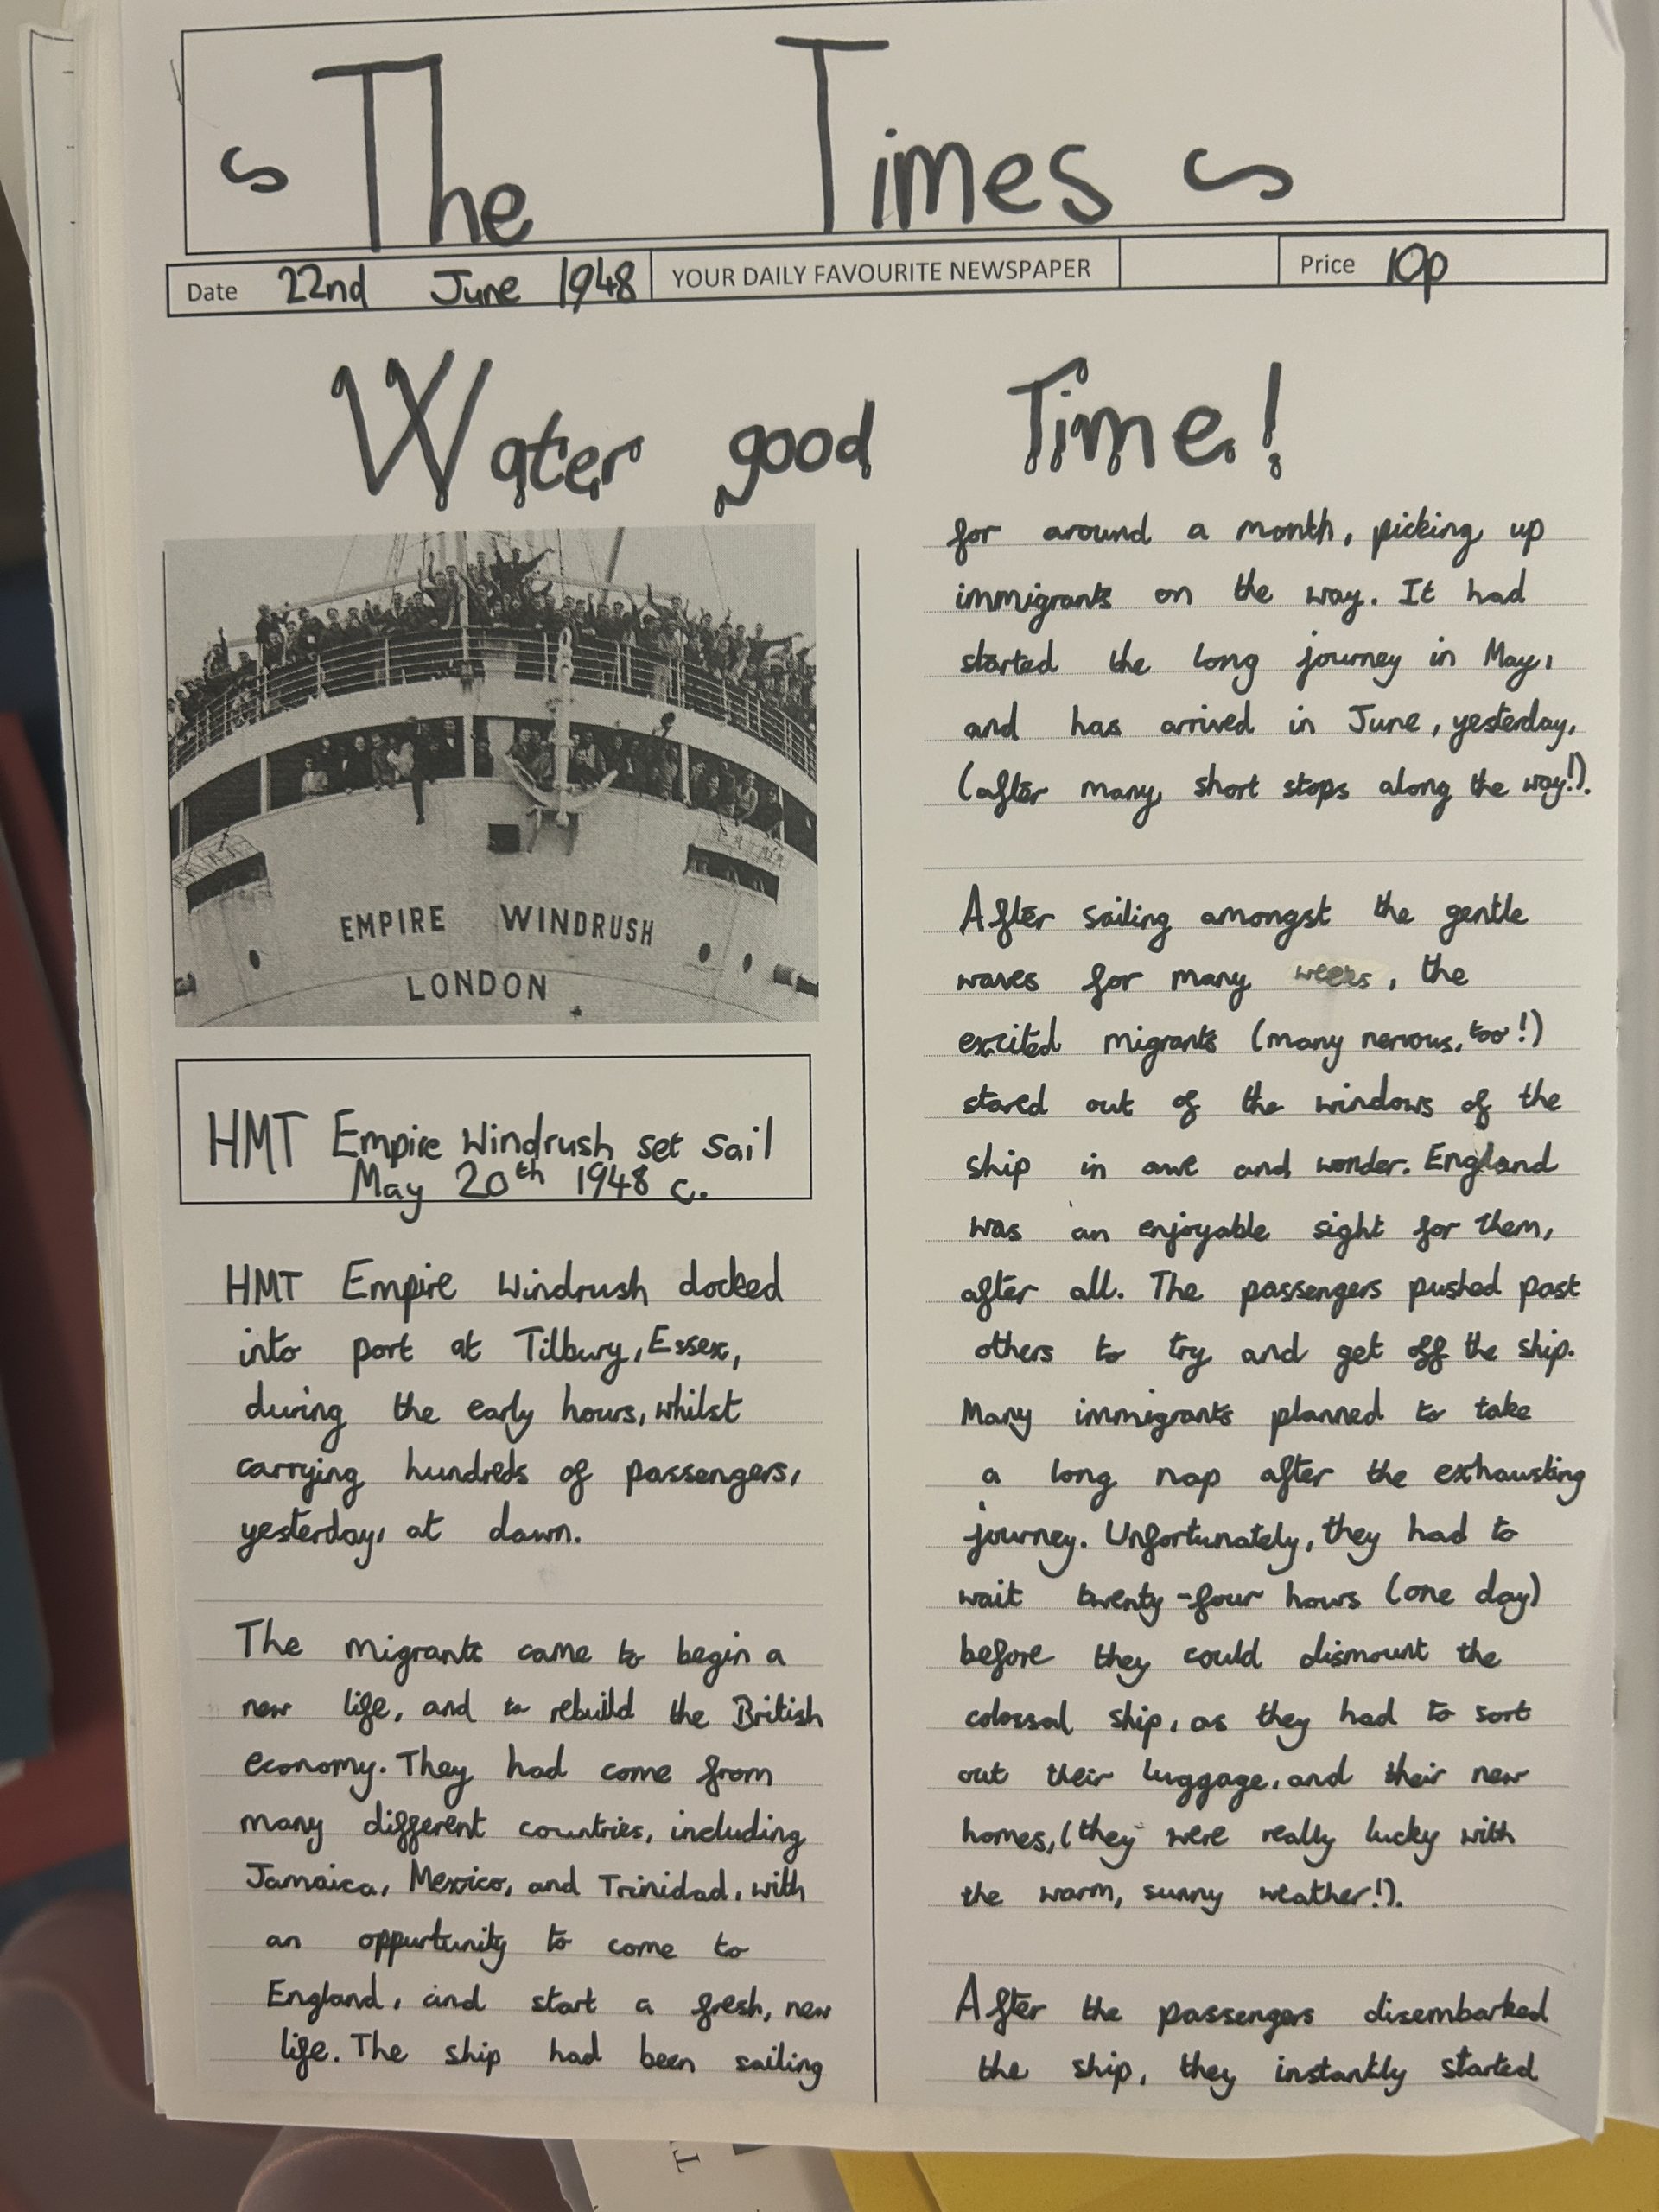 The Times
Date 22nd June 1948 YOUR DAILY FAVOURITE NEWSPAPER Price 10p
Water good Time!
EMPIRE WINDRUSH
LONDON
HMT Empire Windrush set sail
May 20th 1948 c.
HMT Empire Windrush docked
into port at Tilbury, Essex,
during the early hours, whilst
carrying hundreds of passengers,
yesterday, at dawn.
The migrants came to begin a
new life, and to rebuild the British
economy. They had come from
many different countries, including
Jamaica, Mexico, and Trinidad, with
an oppurtunity to come to
England, and start a fresh, new
life. The ship had been sailing
for around a month, picking up
immigrants on the way. It had
started the long journey in May,
and has arrived in June, yesterday,
(after many, short stops along the way!).
After sailing amongst the gentle
waves for many weeks, the
excited migrants (many nervous, too!)
stared out of the windows of the
ship in awe and wonder. England
was an enjoyable sight for them,
after all. The passengers pushed past
others to try and get off the ship.
Many immigrants planned to take
a long nap after the exhausting
journey. Unfortunately, they had to
wait twenty-four hours (one day)
before they could dismount the
colossal ship, as they had to sort
out their luggage, and their new
homes, (they were really lucky with
the warm, sunny weather!).
After the passengers disembarked
the ship, they instantly started